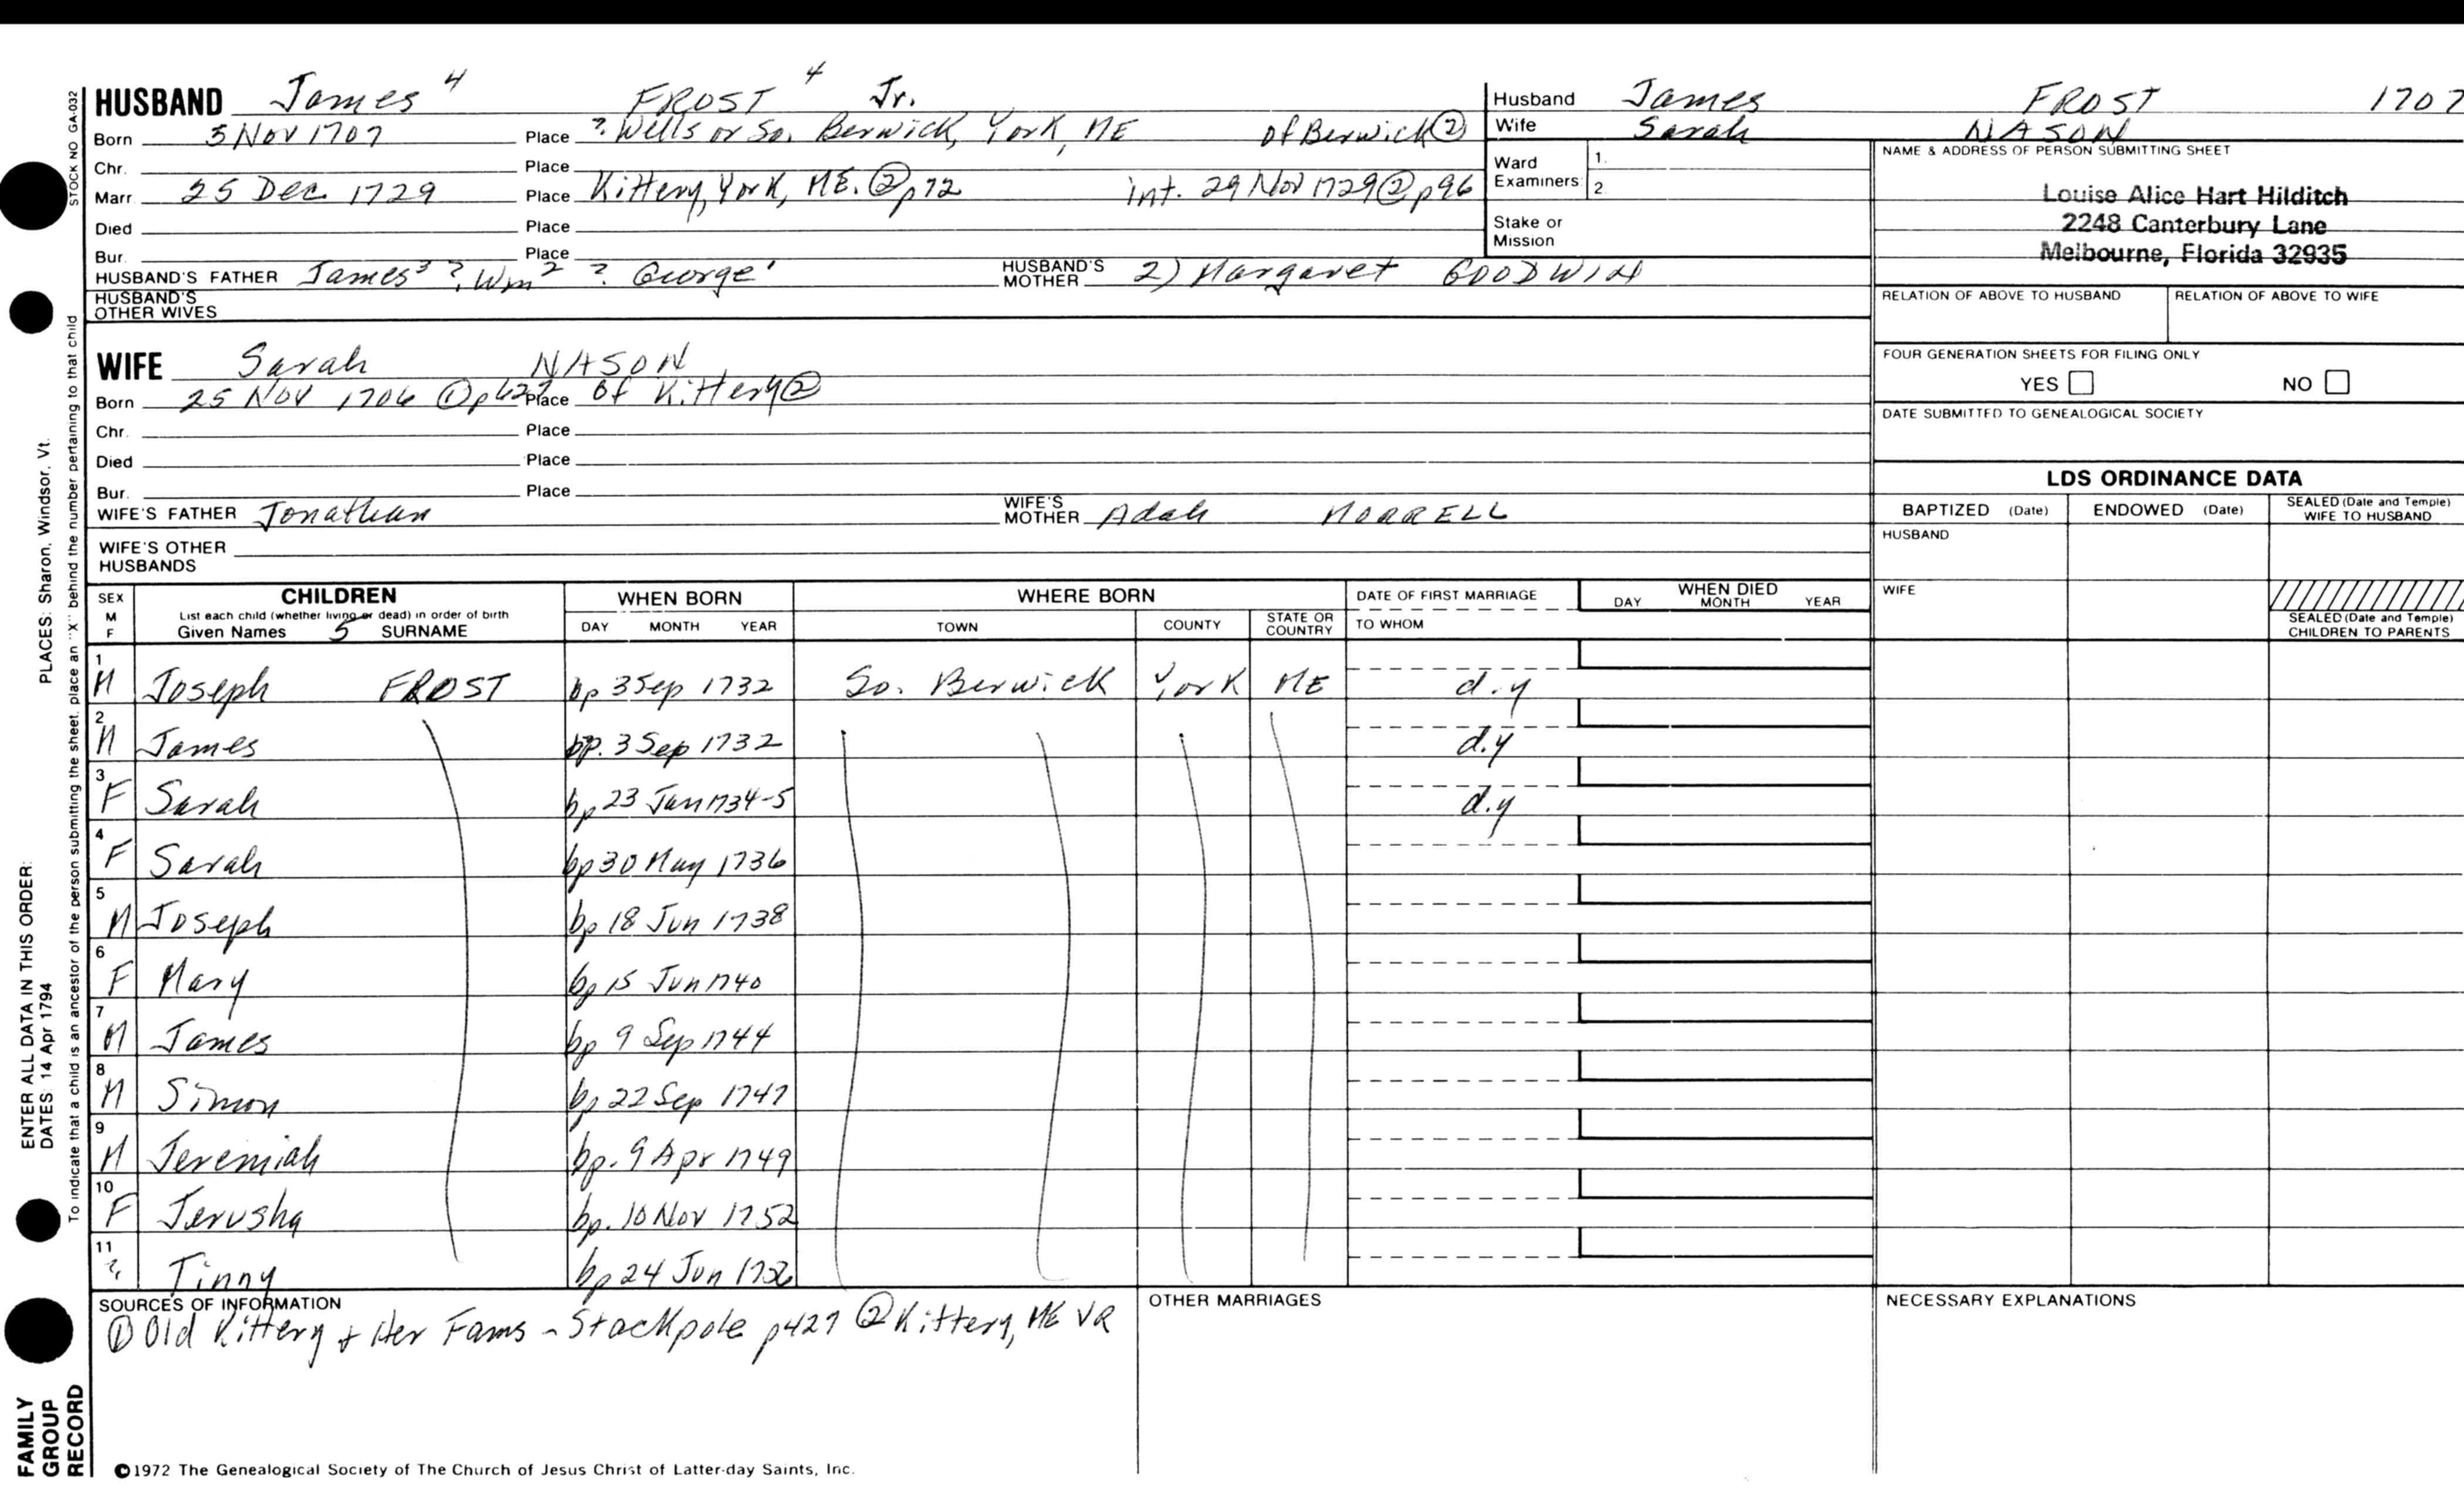 HUSBAND James 4 FROST 4 Jr.
Born 5 Nov 1707 Place ? Wells or So. Berwick, York, ME of Berwick ②
Chr. Place
Marr. 25 Dec. 1729 Place Kittery, York, ME. ② p72 int. 29 Nov 1729 ② p96
Died Place
Bur. Place
HUSBAND'S FATHER James³ ?, Wm² ? George¹ HUSBAND'S MOTHER 2) Margaret GOODWIN
HUSBAND'S OTHER WIVES
WIFE Sarah NASON
Born 25 Nov 1706 ① p427 Place of Kittery ②
Chr. Place
Died Place
Bur. Place
WIFE'S FATHER Jonathan WIFE'S MOTHER Adah MORRELL
WIFE'S OTHER HUSBANDS
Husband James FROST 1707
Wife Sarah NASON
Ward Examiners 1.
2.
Stake or Mission
NAME & ADDRESS OF PERSON SUBMITTING SHEET
Louise Alice Hart Hilditch
2248 Canterbury Lane
Melbourne, Florida 32935
RELATION OF ABOVE TO HUSBAND RELATION OF ABOVE TO WIFE
FOUR GENERATION SHEETS FOR FILING ONLY
YES NO
DATE SUBMITTED TO GENEALOGICAL SOCIETY
LDS ORDINANCE DATA
BAPTIZED (Date) ENDOWED (Date) SEALED (Date and Temple) WIFE TO HUSBAND
HUSBAND
WIFE
SEALED (Date and Temple) CHILDREN TO PARENTS
SEX M F CHILDREN WHEN BORN WHERE BORN DATE OF FIRST MARRIAGE WHEN DIED
List each child (whether living or dead) in order of birth
Given Names 5 SURNAME DAY MONTH YEAR TOWN COUNTY STATE OR COUNTRY TO WHOM DAY MONTH YEAR
1 M Joseph FROST bp 3 Sep 1732 So. Berwick York ME d.y
2 M James bp. 3 Sep 1732 d.y
3 F Sarah bp 23 Jan 1734-5 d.y
4 F Sarah bp 30 May 1736
5 M Joseph bp 18 Jun 1738
6 F Mary bp 15 Jun 1740
7 M James bp 9 Sep 1744
8 M Simon bp 22 Sep 1747
9 M Jeremiah bp. 9 Apr 1749
10 F Jerusha bp. 10 Nov 1752
11 ? Tinny bp 24 Jun
SOURCES OF INFORMATION
① Old Kittery & Her Fams - Stackpole p427 ② Kittery, ME VR
OTHER MARRIAGES
NECESSARY EXPLANATIONS
©1972 The Genealogical Society of The Church of Jesus Christ of Latter-day Saints, Inc.
STOCK NO GA-032
To indicate that a child is an ancestor of the person submitting the sheet, place an "X" behind the number pertaining to that child
ENTER ALL DATA IN THIS ORDER:
DATES: 14 Apr 1794
PLACES: Sharon, Windsor, Vt.
FAMILY GROUP RECORD